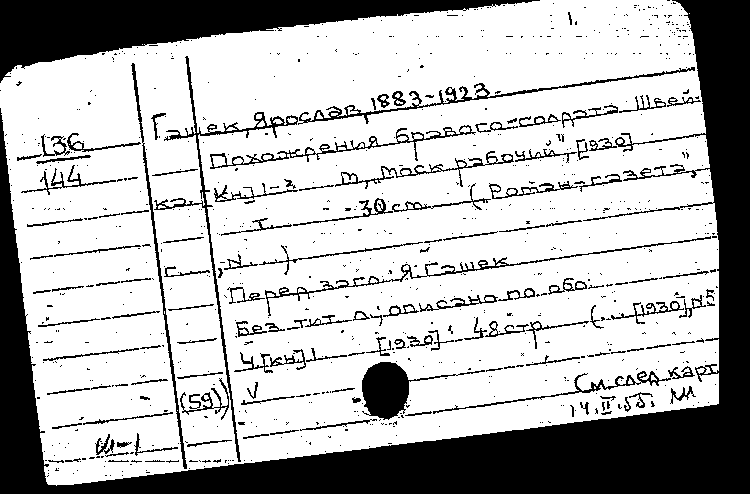 1.
Гашек, Ярослав, 1883-1923.
136
144
Похождения бравого солдата Швей-
ка. [Кн] 1-3 М, „Моск рабочий", [1930]
т. 30 см. („Роман-газета",
г....., N....).
Перед загл: Я. Гашек
Без тит л; описано по обл.
Ч, [кн] 1 [1930]. 48 стр. (... [1930], N5
(59) V
См. след карт
14.II.55.
Ш-1